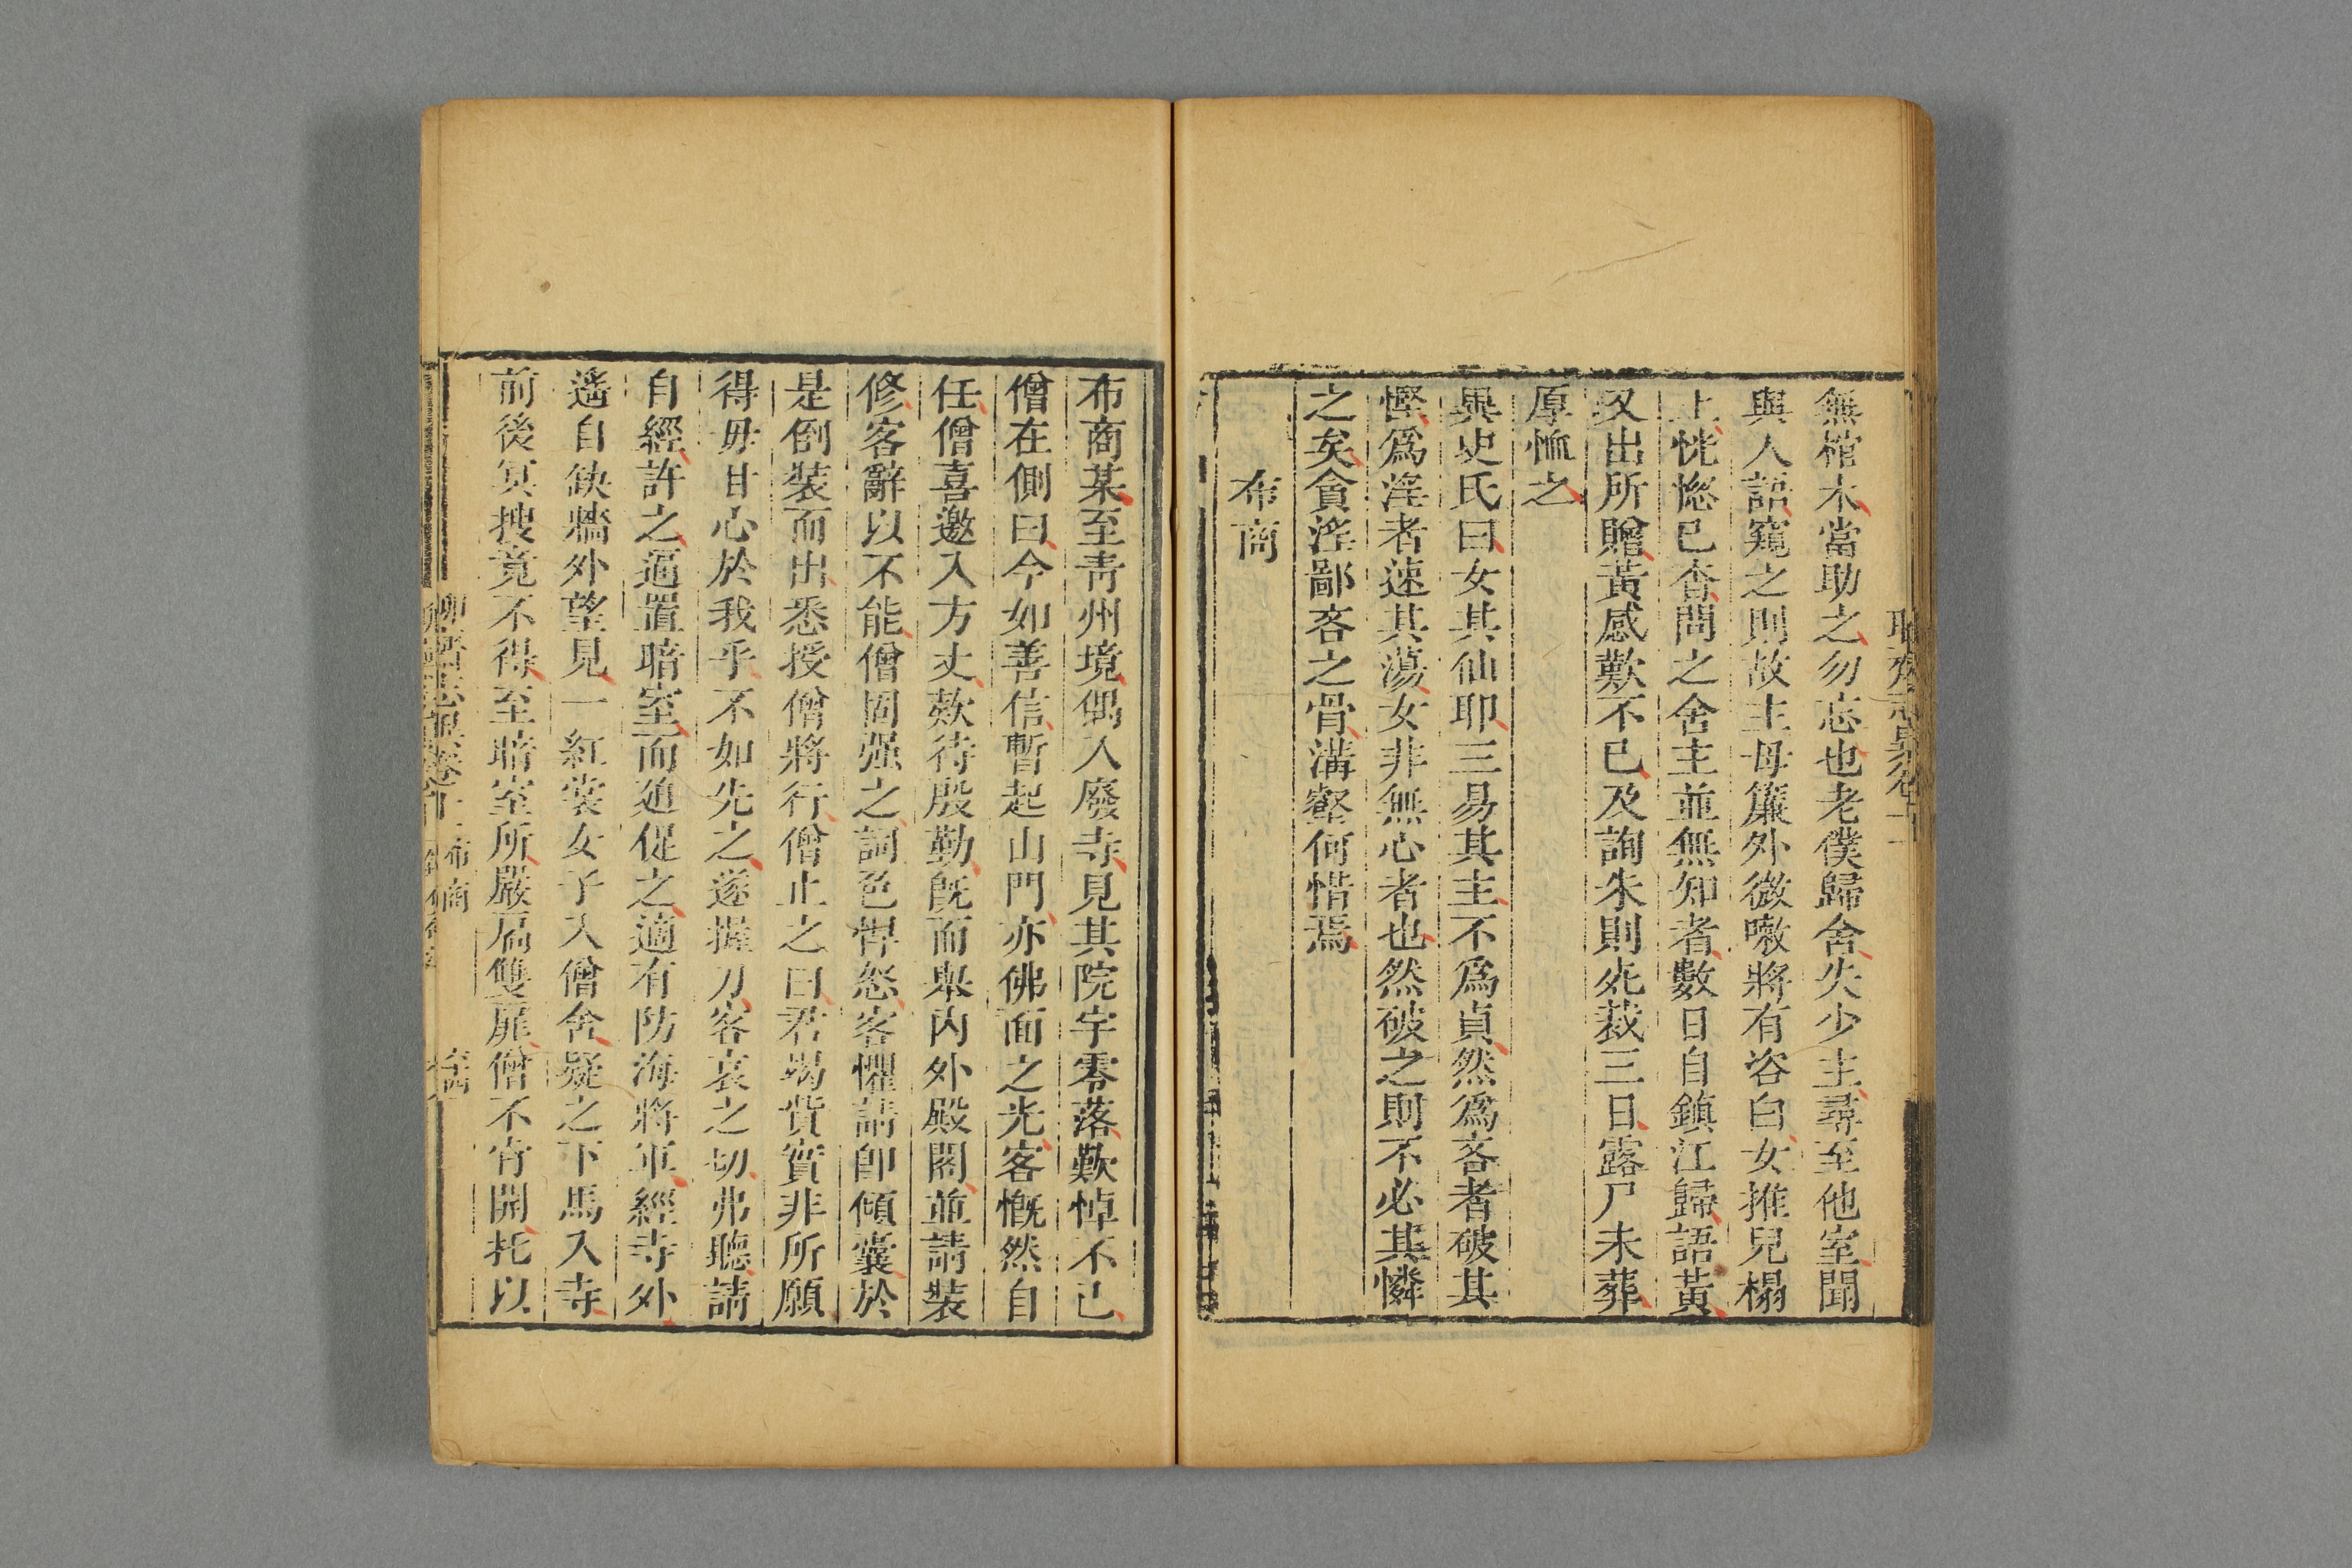 無棺木當助之勿忘也老僕歸舍失少主尋至他室聞
與人語窺之則故主母簾外微嗽將有咨白女推兒榻
上恍惚已杳問之舍主並無知者數日自鎮江歸語黃
又出所贈黃感歎不已及詢朱則死裁三日露尸未葬
厚恤之
異史氏曰女其仙耶三易其主不爲貞然爲吝者破其
慳爲淫者速其蕩女非無心者也然破之則不必其憐
之矣貪淫鄙吝之骨溝壑何惜焉
布商
布商某至青州境偶入廢寺見其院宇零落歎悼不已
僧在側曰今如善信暫起山門亦佛面之光客慨然自
任僧喜邀入方丈款待殷勤旣而舉內外殿閣並請裝
修客辭以不能僧固强之詞色悍怒客懼請卽傾囊於
是倒裝而出悉授僧將行僧止之曰君竭貲實非所願
得毋甘心於我乎不如先之遂握刀客哀之切弗聽請
自經許之逼置暗室而廹促之適有防海將軍經寺外
遙自缺牆外望見一紅裳女子入僧舍疑之下馬入寺
前後冥搜竟不得至暗室所嚴扃雙扉僧不肯開托以
布商